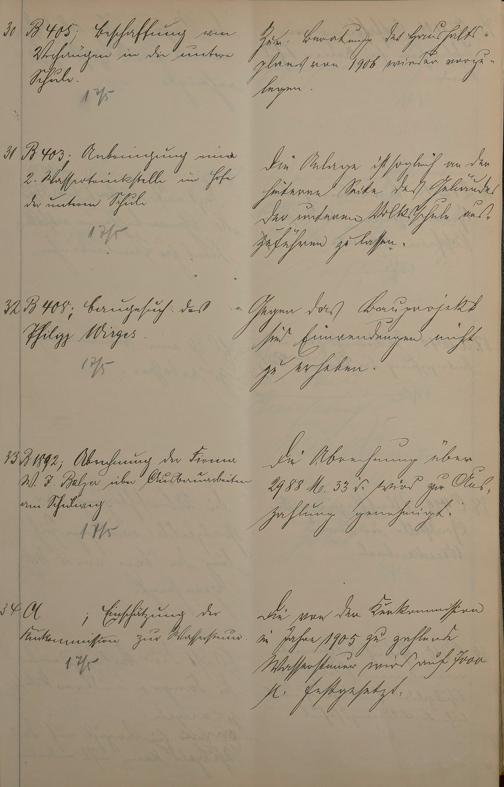 30 B 405; Beschaffung von
Vorhängen in der untern
Schule.
17/5
Zur Beratung des Haushalts-
plans von 1906 wieder vorzu-
legen.
31 B 403; Anbringung einer
2. Wassertrinkstelle im Hofe
der untern Schule
17/5
Die Anlage ist sogleich an der
hinteren Seite des Gebäudes
der unteren Volksschule aus-
zuführen zu lassen.
32 B 408; Baugesuch des
Philipp Wirges.
17/5
Gegen das Bauprojekt
sind Einwendungen nicht
zu erheben.
33 B 1892; Abrechnung der Firma
W. F. über Ausbauarbeiten
am Schulweg
17/5
Die Abrechnung über
2988 M. 33 d. wird zur Aus-
zahlung genehmigt.
34 A ; Einschätzung der
Kurkommission zur Wassersteuer
17/5
Die von der Kurkommission
im Jahre 1905 zu zahlende
Wassersteuer wird auf 7000
M. festgesetzt.